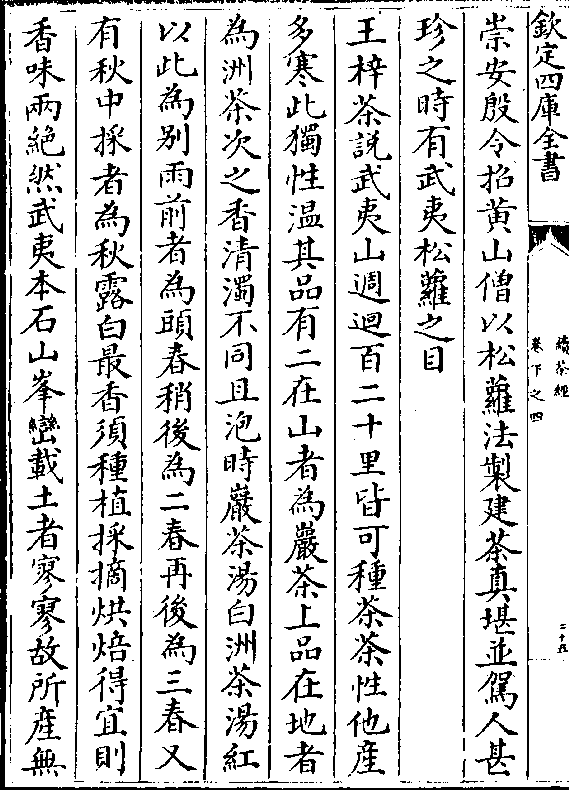 欽定四庫全書
續茶經
卷下之四
二十九
崇安殷令招黄山僧以松蘿法製建茶真堪並駕人甚
珍之時有武夷松蘿之目
王梓茶説武夷山週迴百二十里皆可種茶茶性他産
多寒此獨性温其品有二在山者為巖茶上品在地者
為洲茶次之香清濁不同且泡時巖茶湯白洲茶湯紅
以此為别雨前者為頭春稍後為二春再後為三春又
有秋中採者為秋露白最香須種植採摘烘焙得宜則
香味兩絶然武夷本石山峯巒載土者寥寥故所産無